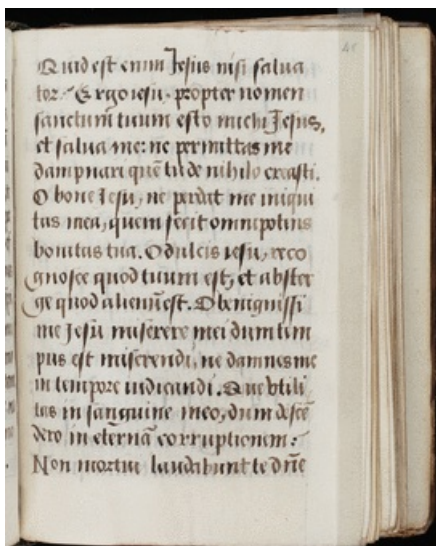 Quid est enim Jesus nisi salua
tor. Ergo iesu, propter nomen
sanctum tuum esto michi Jesus,
et salua me: ne permittas me
dampnari quē tu de nihilo creasti.
O bone Jesu, ne perdat me iniqui
tas mea, quem fecit omnipotens
bonitas tua. O dulcis iesu, reco
gnosce quod tuum est, et abster
ge quod alienū est. O benignissi
me Jesu miserere mei dum tem
pus est miserendi, ne damnes me
in tempore iudicandi. Que vtili
tas in sanguine meo, dum descē
dero in eternā corruptionem:
Non mortui laudabunt te dn̄e